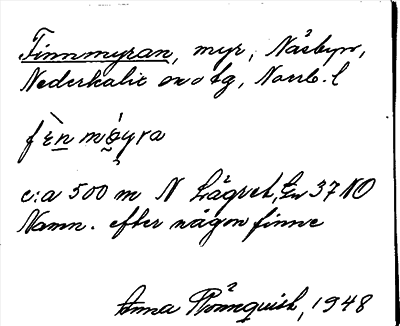 Finnmyran, myr, Näsbyn,
Nederkalix sn o tg, Norrb. l
fɛ̀n mýra
c:a 500 m N Lägret, 37 NO
Namn. efter någon finne
Anna 1948